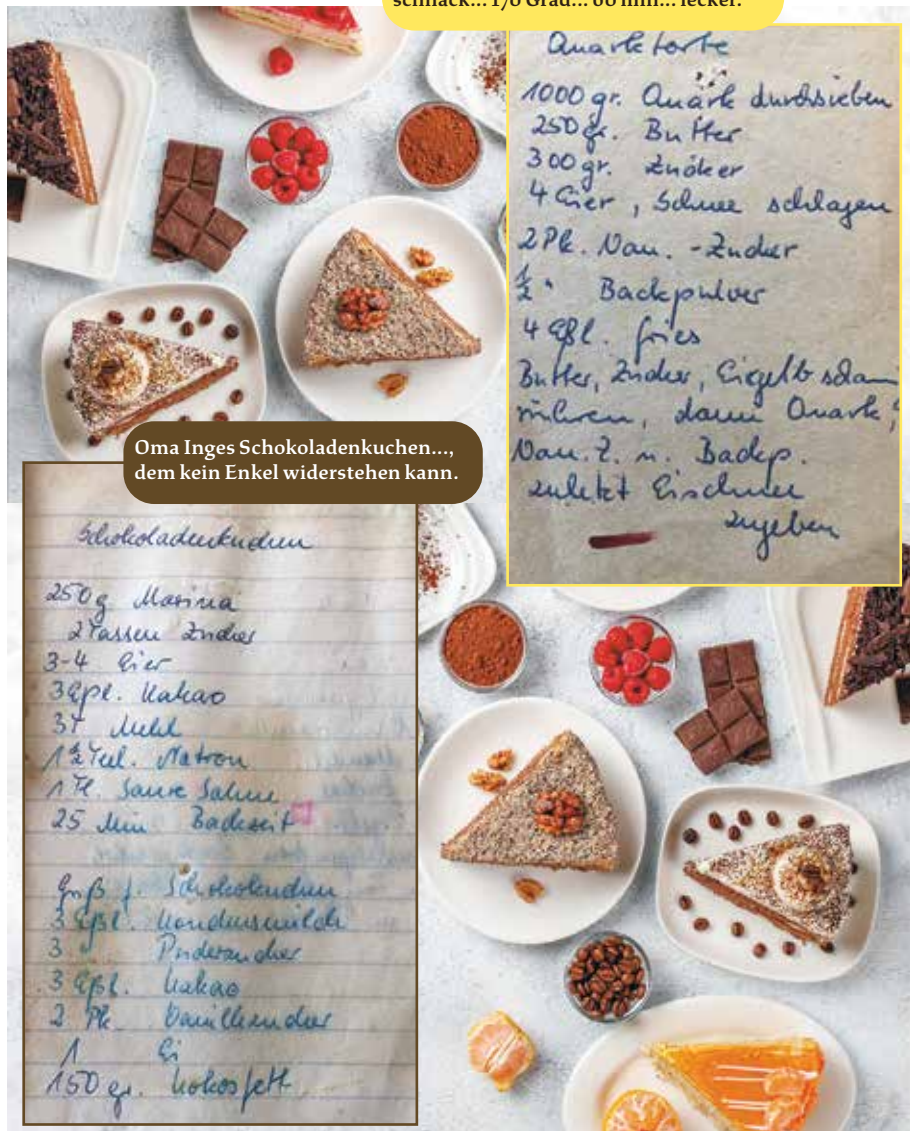 schmack... 170 Grad... 60 min... lecker.
Quarktorte
1000 gr. Quark durchsieben
250 gr. Butter
300 gr. Zucker
4 Eier, Schnee schlagen
2 Pk. Van.-Zucker
½ " Backpulver
4 Eßl. Gries
Butter, Zucker, Eigelb
rühren, dann Quark,
Van. Z. u. Backp.
zuletzt Eischnee
zugeben
Oma Inges Schokoladenkuchen...,
dem kein Enkel widerstehen kann.
Schokoladenkuchen
250 g Marina
2 Tassen Zucker
3-4 Eier
3 Eßl. Kakao
3 T Mehl
1½ Teel. Natron
1 T. Saure Sahne
25 Min Backzeit
Guß f. Schokokuchen
3 Eßl. Kondensmilch
3 " Puderzucker
3 Eßl. Kakao
2 Pk Vanillezucker
1 Ei
150 gr. Kokosfett